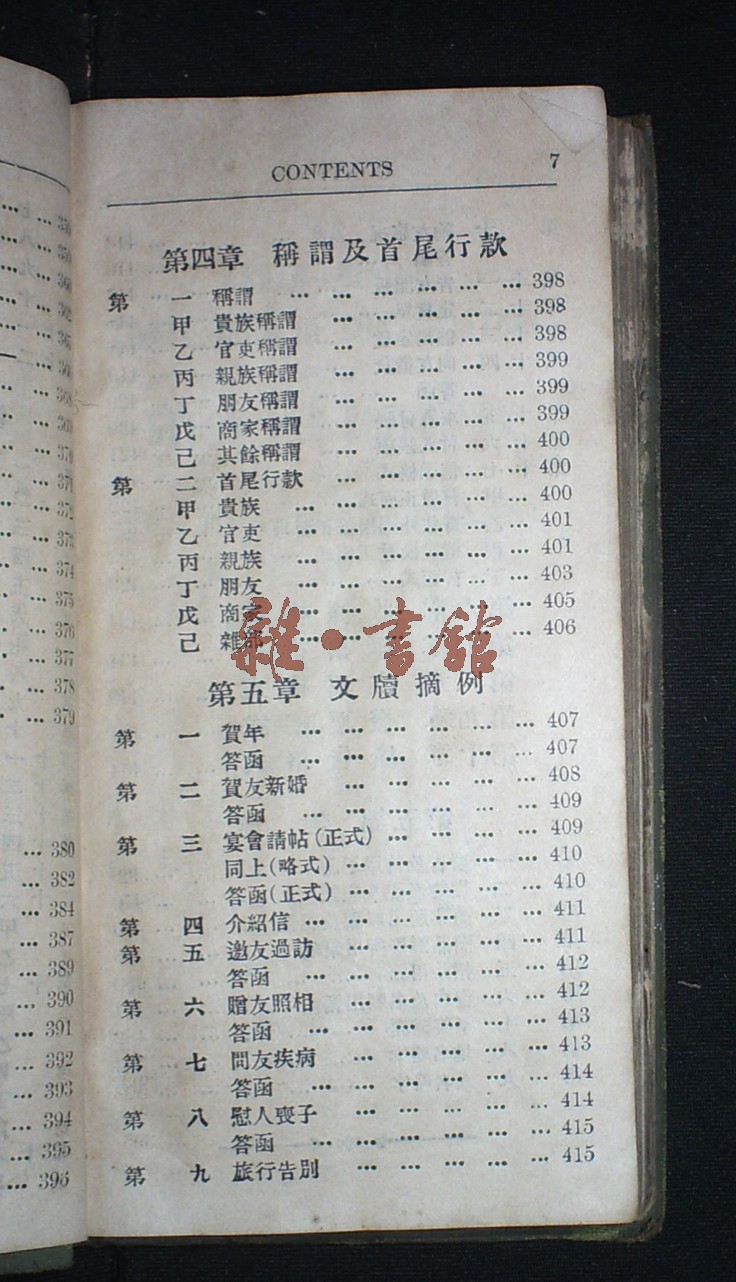 ... 370
... 371
... 372
... 373
... 374
... 375
... 376
... 377
... 378
... 379
... 380
... 382
... 384
... 387
... 389
... 390
... 391
... 392
... 393
... 394
... 395
... 396
CONTENTS 7
第四章 稱謂及首尾行款
第 一 稱謂 ... ... ... ... ... ... 398
甲 貴族稱謂 ... ... ... ... ... 398
乙 官吏稱謂 ... ... ... ... ... 398
丙 親族稱謂 ... ... ... ... ... 399
丁 朋友稱謂 ... ... ... ... ... 399
戊 商家稱謂 ... ... ... ... ... 399
己 其餘稱謂 ... ... ... ... ... 400
第 二 首尾行款 ... ... ... ... ... 400
甲 貴族 ... ... ... ... ... ... 400
乙 官吏 ... ... ... ... ... ... 401
丙 親族 ... ... ... ... ... ... 401
丁 朋友 ... ... ... ... ... ... 403
戊 商家 ... ... ... ... ... ... 405
己 雜部 ... ... ... ... ... ... 406
雜·書館
第五章 文牘摘例
第 一 賀年 ... ... ... ... ... ... 407
答函 ... ... ... ... ... ... 407
第 二 賀友新婚 ... ... ... ... ... 408
答函 ... ... ... ... ... ... 409
第 三 宴會請帖(正式) ... ... ... ... 409
同上(略式) ... ... ... ... ... 410
答函(正式) ... ... ... ... ... 410
第 四 介紹信 ... ... ... ... ... ... 411
第 五 邀友過訪 ... ... ... ... ... 411
答函 ... ... ... ... ... ... 412
第 六 贈友照相 ... ... ... ... ... 412
答函 ... ... ... ... ... ... 413
第 七 問友疾病 ... ... ... ... ... 413
答函 ... ... ... ... ... ... 414
第 八 慰人喪子 ... ... ... ... ... 414
答函 ... ... ... ... ... ... 415
第 九 旅行告別 ... ... ... ... ... 415